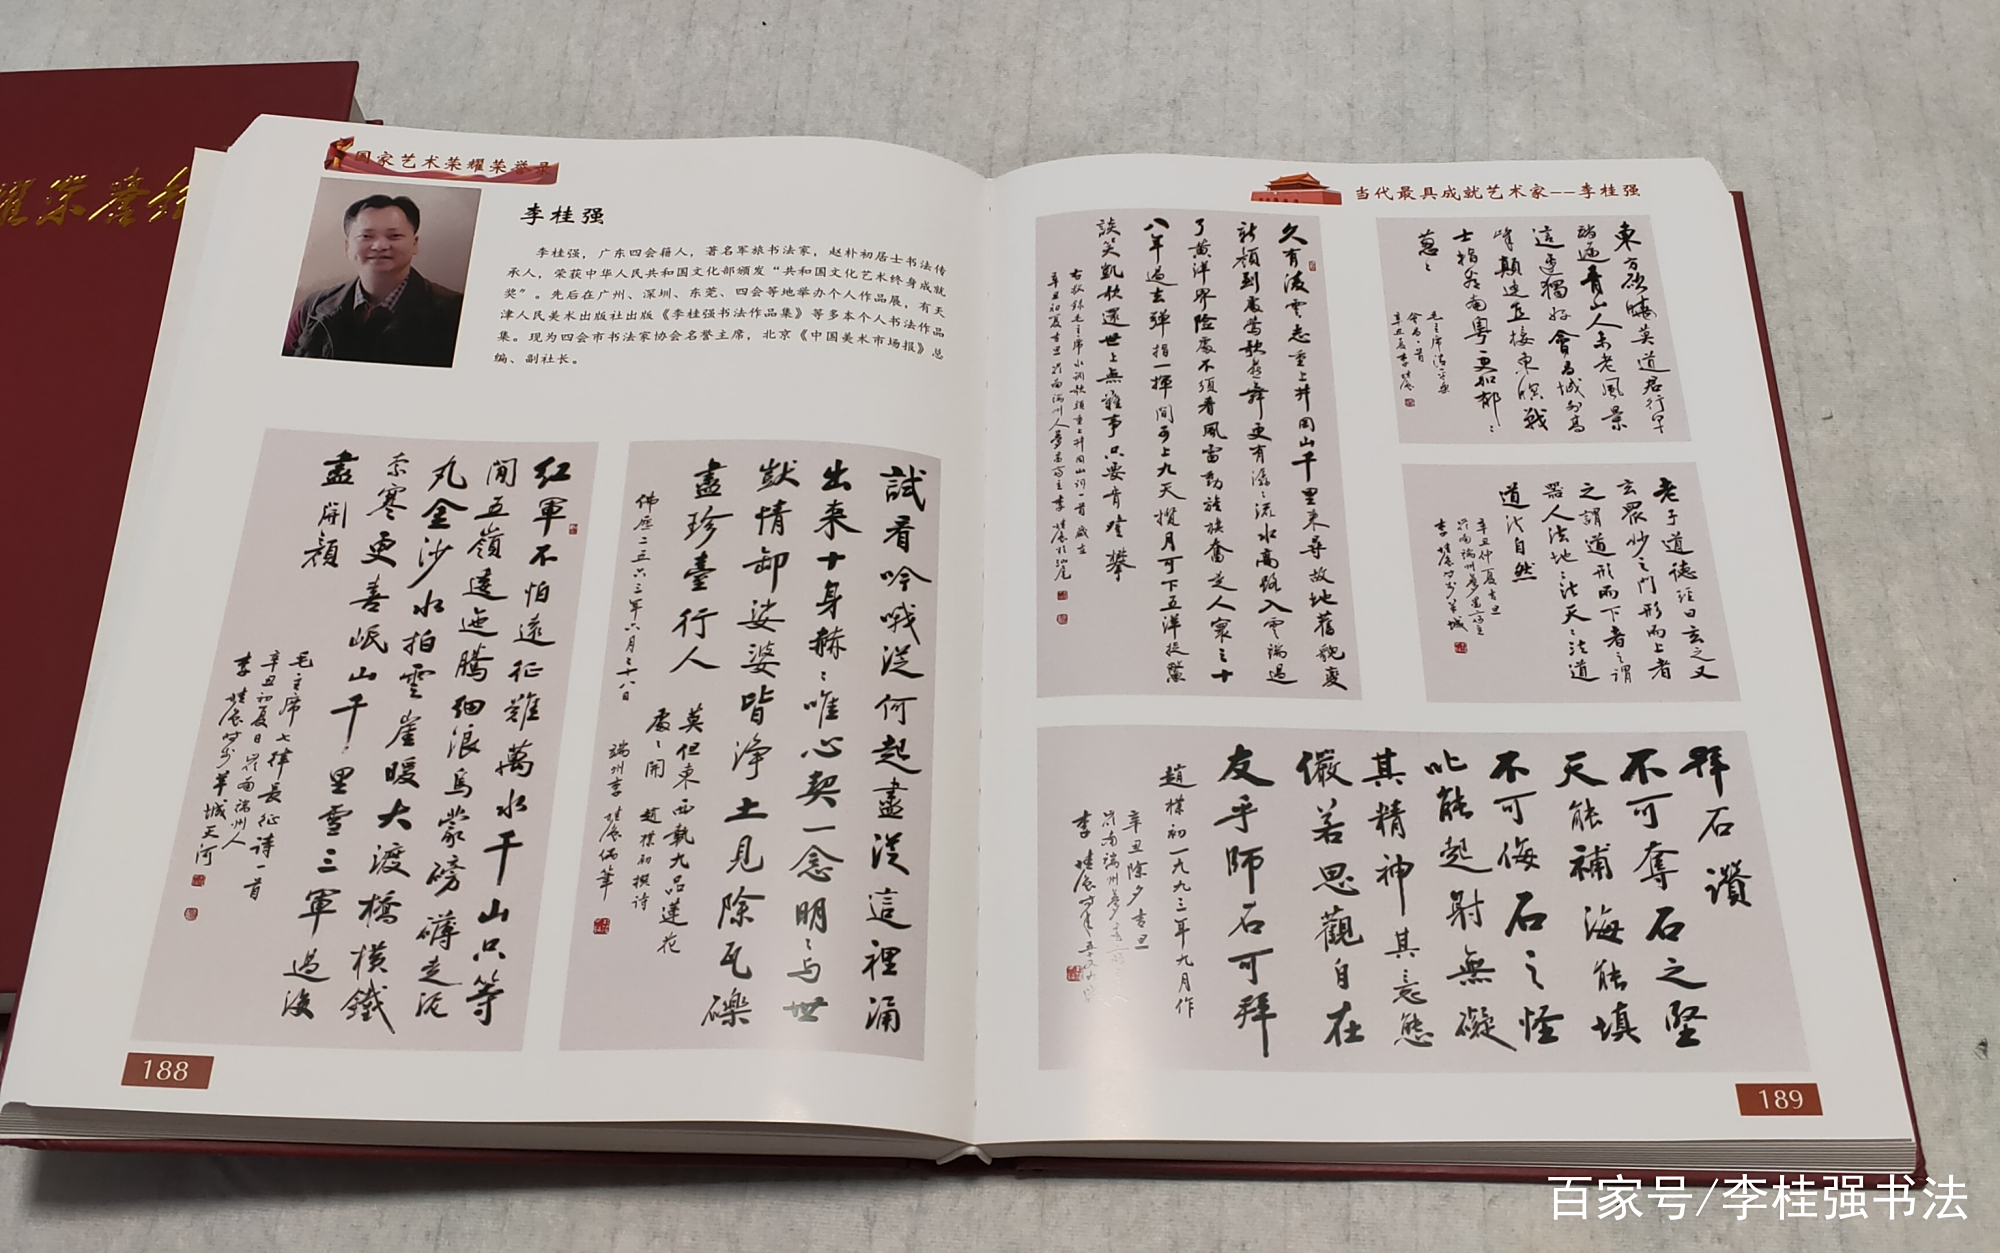 国家艺术荣耀荣誉录
李桂强
李桂强，广东四会籍人，著名军旅书法家，赵朴初居士书法传
承人，荣获中华人民共和国文化部颁发“共和国文化艺术终身成就
奖”。先后在广州、深圳、东莞、四会等地举办个人作品展，有天
津人民美术出版社出版《李桂强书法作品集》等多本个人书法作品
集。现为四会市书法家协会名誉主席，北京《中国美术市场报》总
编、副社长。
紅軍不怕遠征難萬水千山只等
閒五嶺逶迤騰細浪烏蒙磅礴走泥
丸金沙水拍雲崖暖大渡橋橫鐵
索寒更喜岷山千里雪三軍過後
盡開顏
毛主席七律長征詩一首
辛丑初夏日
試看吟哦從何起盡從這裡涌
出來十身赫〻唯心契一念明〻与世
獣情卸娑婆皆淨土見除瓦礫
盡珍臺行人莫但東西執九品蓮花
處〻開 趙樸初撰诗
佛曆二五六三年六月二十八日
188
当代最具成就艺术家--李桂强
久有凌雲志重上井岡山千里來尋故地舊貌變
新顏到處鶯歌燕舞更有潺〻流水高路入雲端過
了黄洋界险處不須看風雷動旌旗奮是人寰三十
八年過去彈指一揮間可上九天攬月可下五洋捉鱉
談笑凱歌還世上無難事只要肯登攀
東方欲曉莫道君行早
踏遍青山人未老風景
這邊獨好會昌城外高
峰顛連直接東溟戰
士指看南粤更加郁〻
葱〻
老子道德經曰玄之又
玄眾妙之門形而上者
之謂道形而下者之謂
器人法地〻法天〻法道
道法自然
拜石讚
不可奪石之堅
天能補海能填
不可侮石之怪
叱能起射無礙
其精神其意態
儼若思觀自在
友乎師石可拜
趙樸初一九九三年九月作
辛丑除夕吉旦
189
百家号/李桂强书法